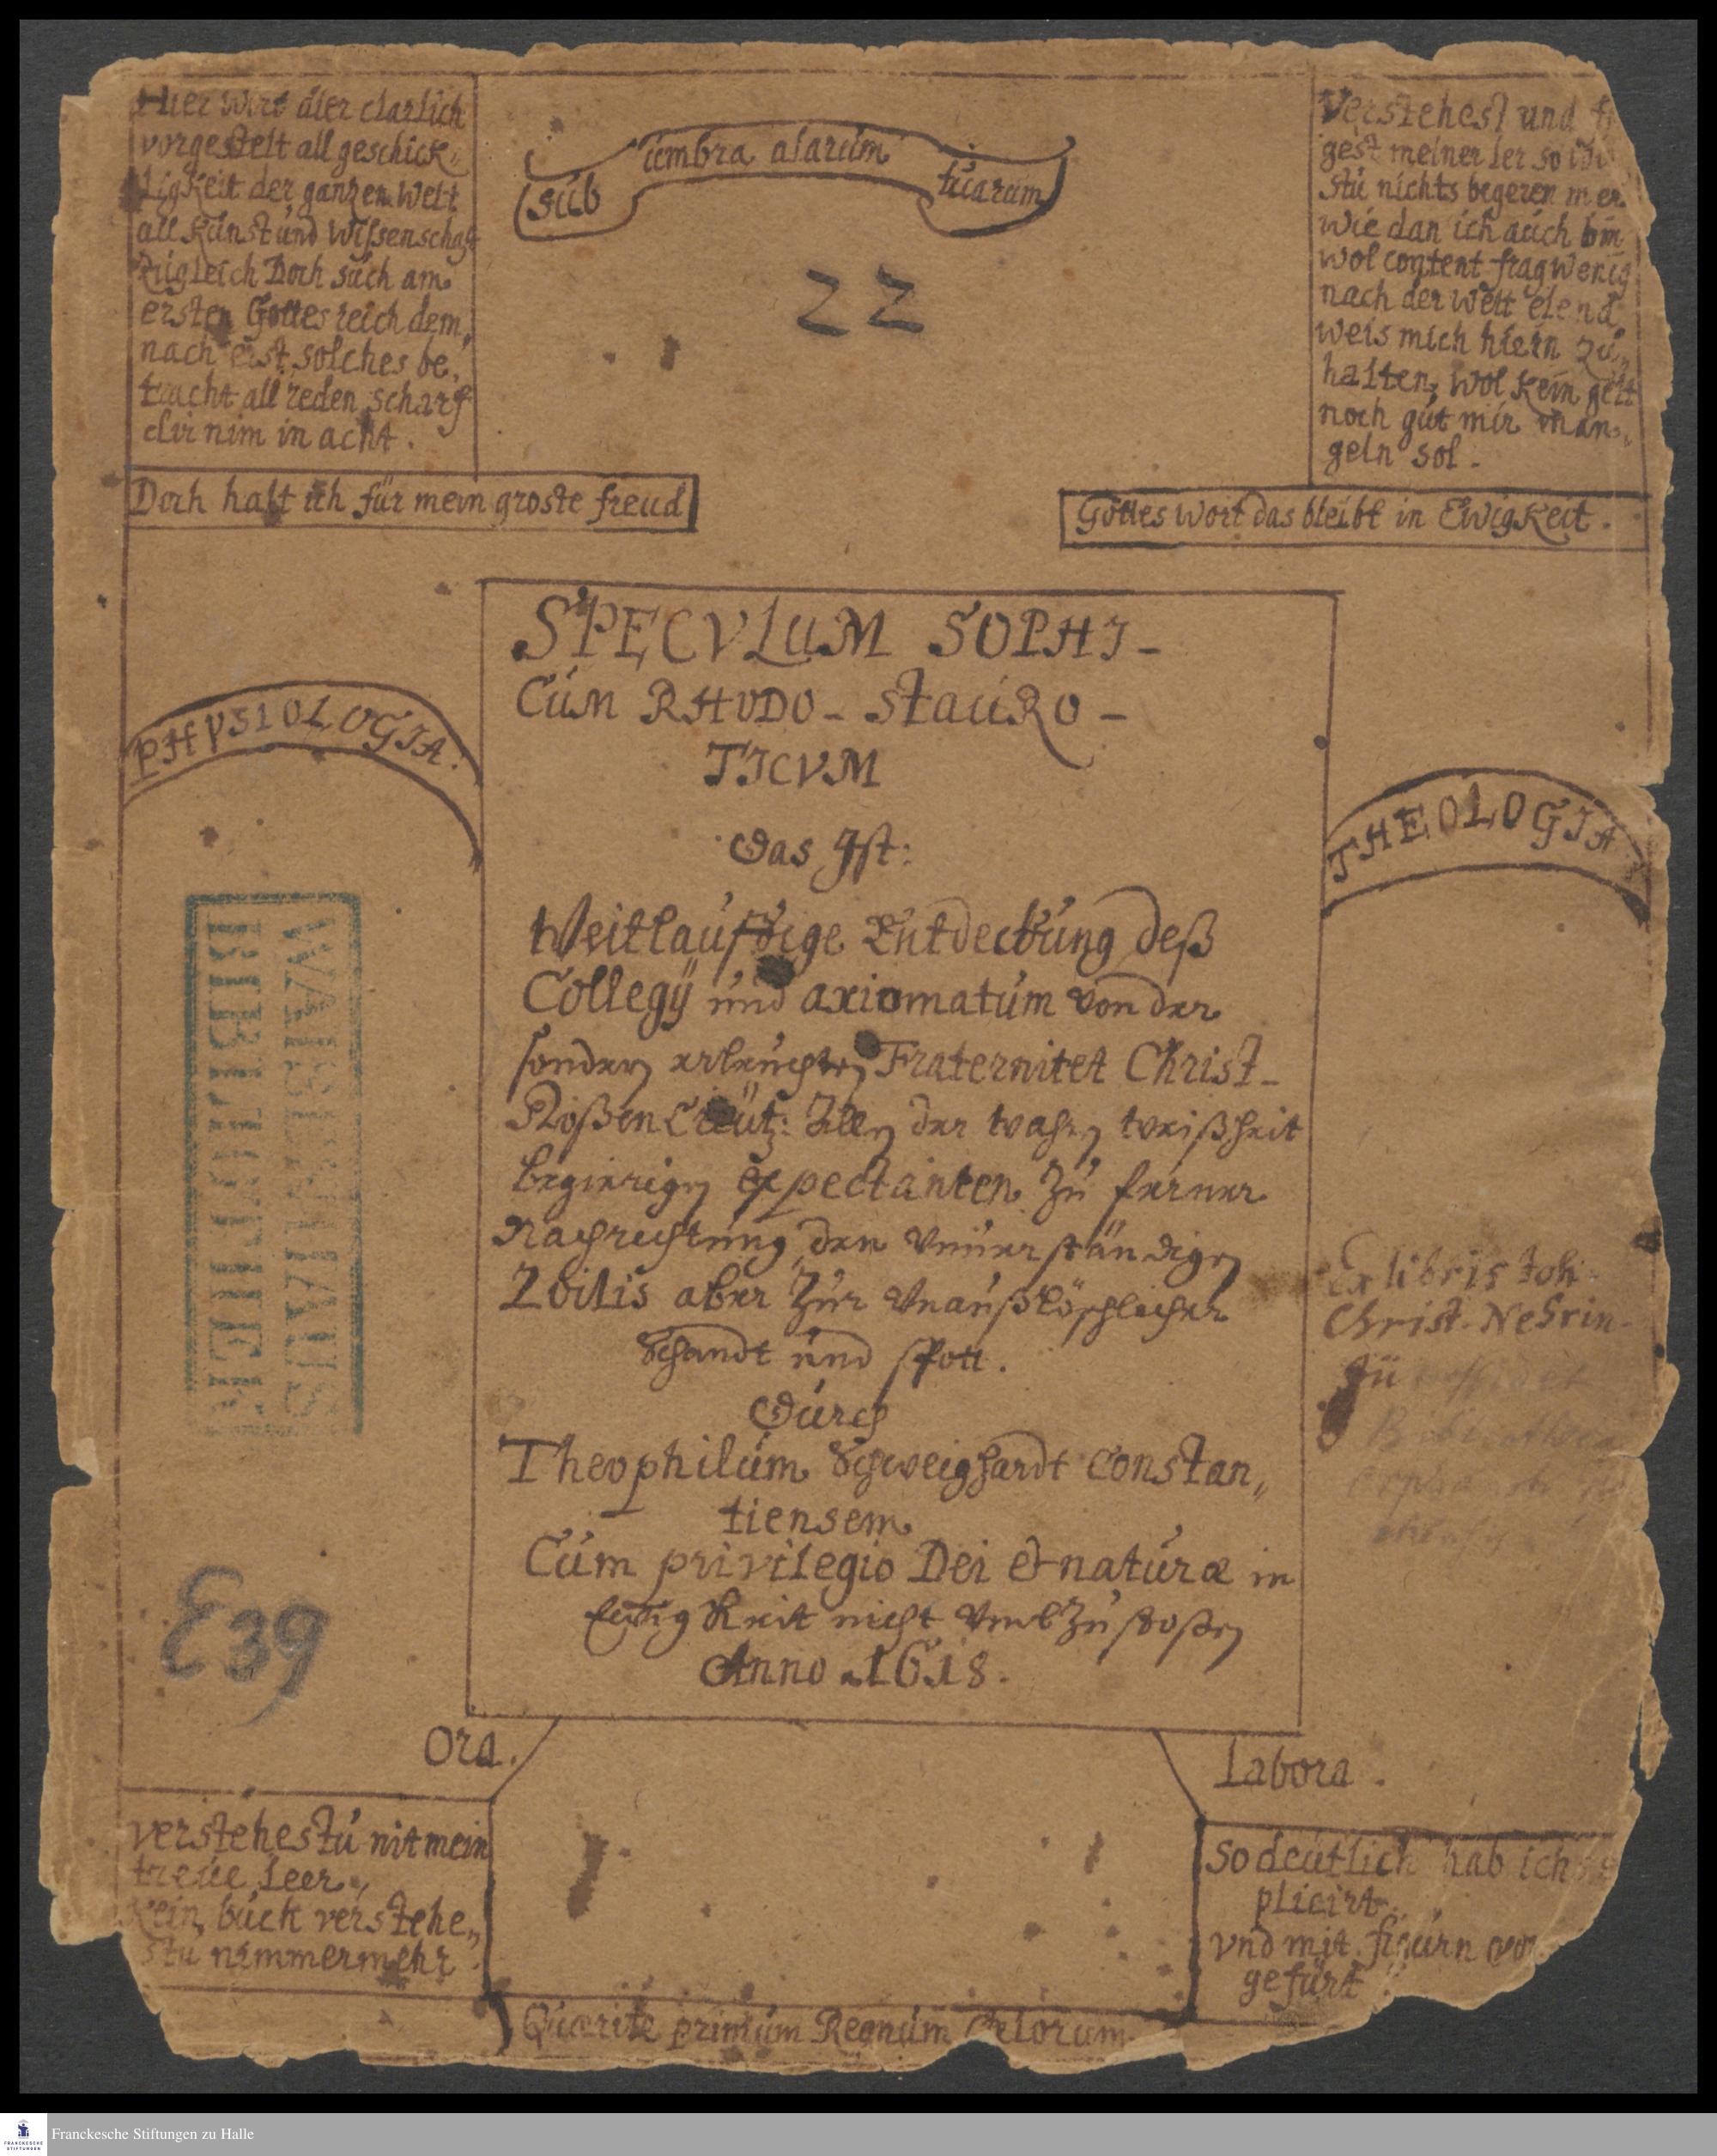 Hier wirt aler clarlich
vorgestelt all geschick„
ligkeit der ganzen Welt
all Kunst und Wissenschaft
zugleich Doch such am
ersten Gottes reich dem„
nach erst solches be„
tracht all reden scharf
dir nim in acht.
sub umbra alarum tuarum
22
Verstehest und
gest meiner ler so
stu nichts begeren mer
wie dan ich auch bin
wol content frag wenig
nach der welt elend
weis mich hierin zu„
halten, wol kein gelt
noch gut mir man„
geln sol.
Doch halt ich für mein groste freud
Gottes Wort das bleibt in Ewigkeit.
PHYSIOLOGIA.
THEOLOGIA
SPECVLUM SOPHI-
CUM RHODO-STAURO-
TICVM
Das Ist:
Weitlauffdige Entdeckung deß
Collegij und axiomatum von der
sondern erleuchten Fraternitet Christ-
Roßen Creutz: Allen der wahren weißheit
begierigen expectanten zu ferner
Nachrichtung, den vnuerständigen
Zoilis aber zur vnaußlöschlicher
Schandt und spott.
Durch
Theophilum Schweighardt Constan„
tiensem
Cum privilegio Dei et naturæ in
Ewigkeit nicht vmbzustoßen
Anno 1618.
WAISENHAUS
BIBLIOTHEK
Ex libris Joh.
Christ. Nehrin-
gii
E39
Ora.
Labora.
verstehestu nit mein
treue leer„
kein buch verstehe„
stu nimmermehr.
So deutlich hab ich
plicirt
vnd mit figurn
gefürt
Quærite primum Regnum Cœlorum.
Franckesche Stiftungen zu Halle
FRANCKESCHE
STIFTUNGEN